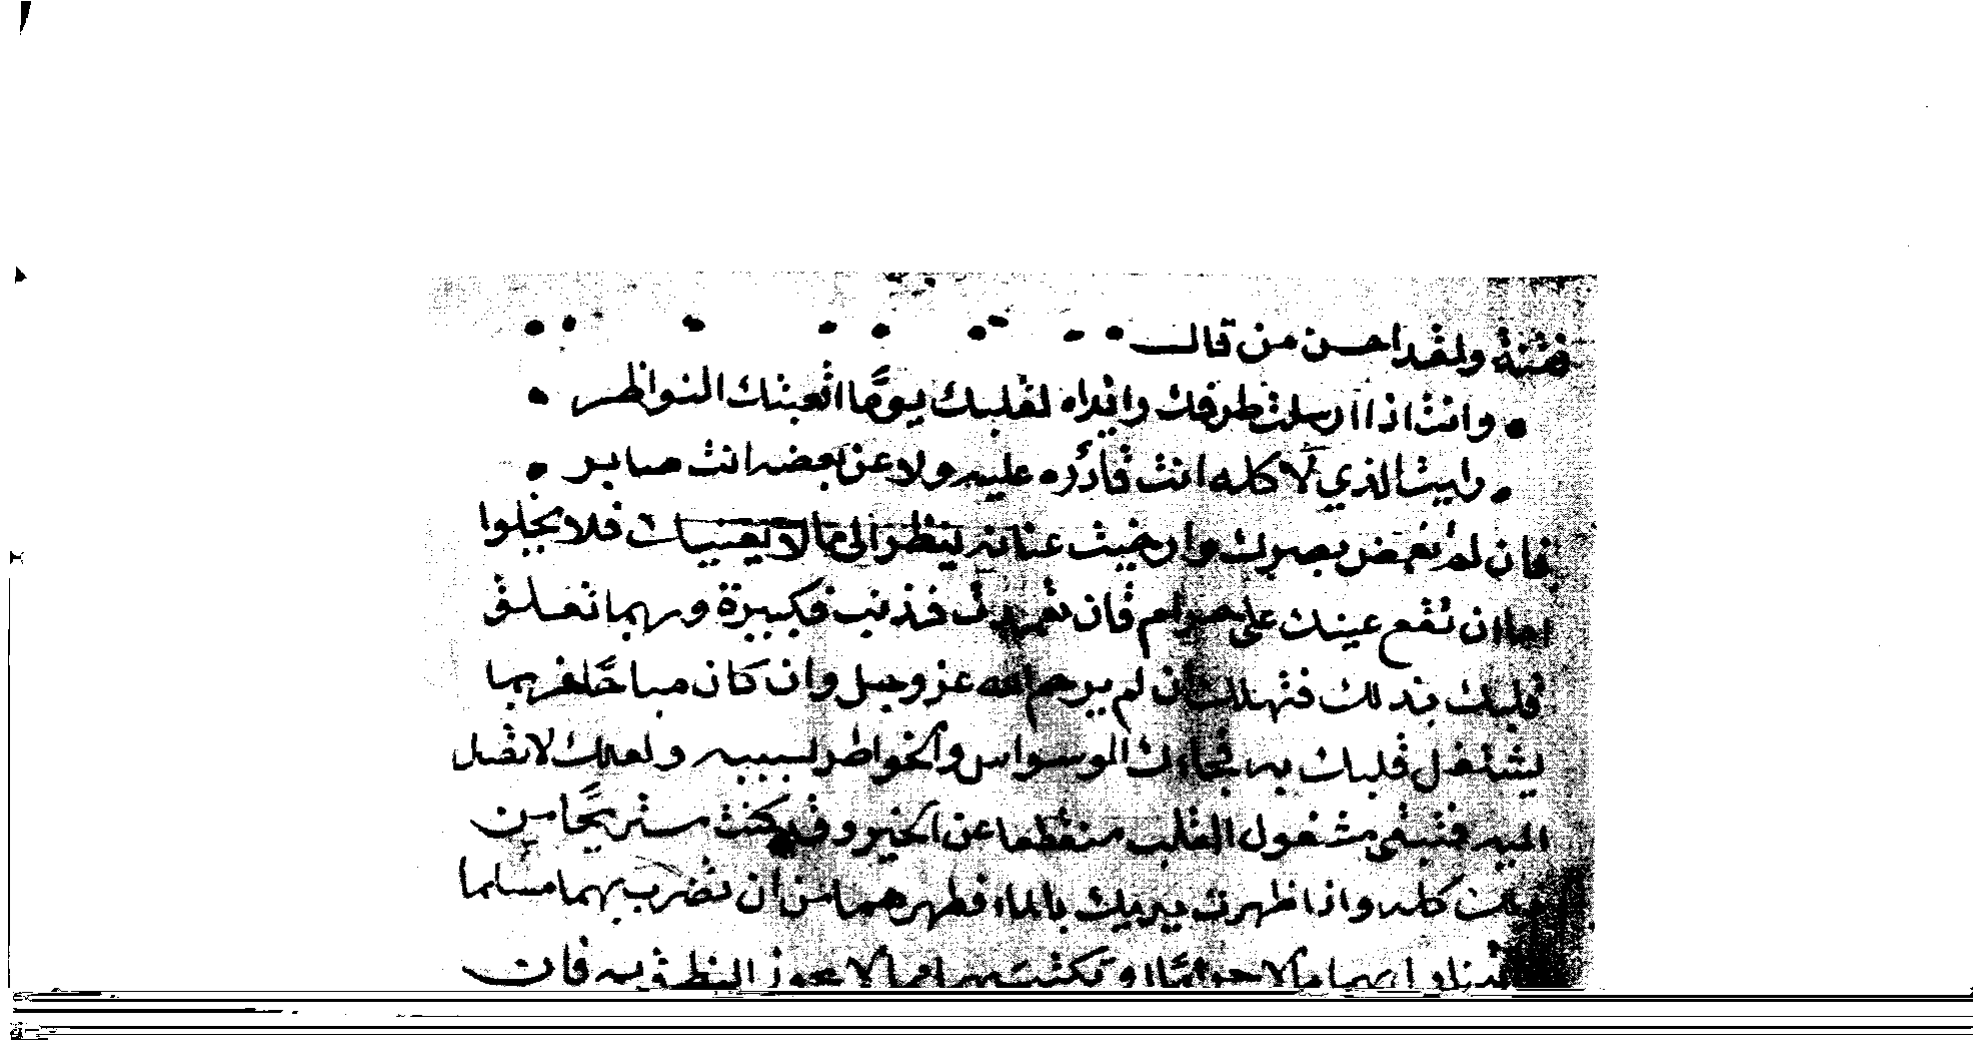 فتنة ولقد احسن من قال
وانت اذا ارسلت طرفك رايدا لقلبك يومًا اتعبتك النواظر
رايت الذي لا كله انت قادر عليه ولا عن بعضه انت صابر
فان لم تغمض بصرك وارخيت عنانه ينظر الى مالا يعنيك فلا يخلوا
اما ان تقع عينك على حرام فان تعمدت فذنب وكبيرة وربما تعلق
قلبك بذلك فتهلك ان لم يرحم الله عز وجل وان كان مباحًا فربما
يشتغل قلبك به فجاءك الوسواس والخواطر بسببه ولعلك لا تصل
اليه فتبقى مشغول القلب منقطعا عن الخير وقد كنت مستريحًا من
ذلك كله واذا ظهرت يديك بالماء فطهرهما من ان تضرب بهما مسلما
او تتناول بهما مالا حرامًا او تكتب بهما مالا يجوز النطق به فان